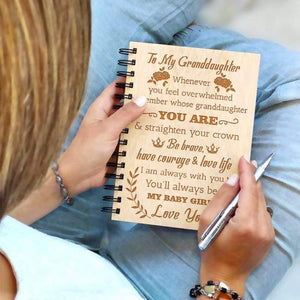 To My Granddaughter
Whenever
you feel overwhelmed
mber whose granddaughter
YOU ARE
& straighten your crown
Be brave,
have courage & love life
I am always with you
You'll always be
MY BABY GIR
Love Yo